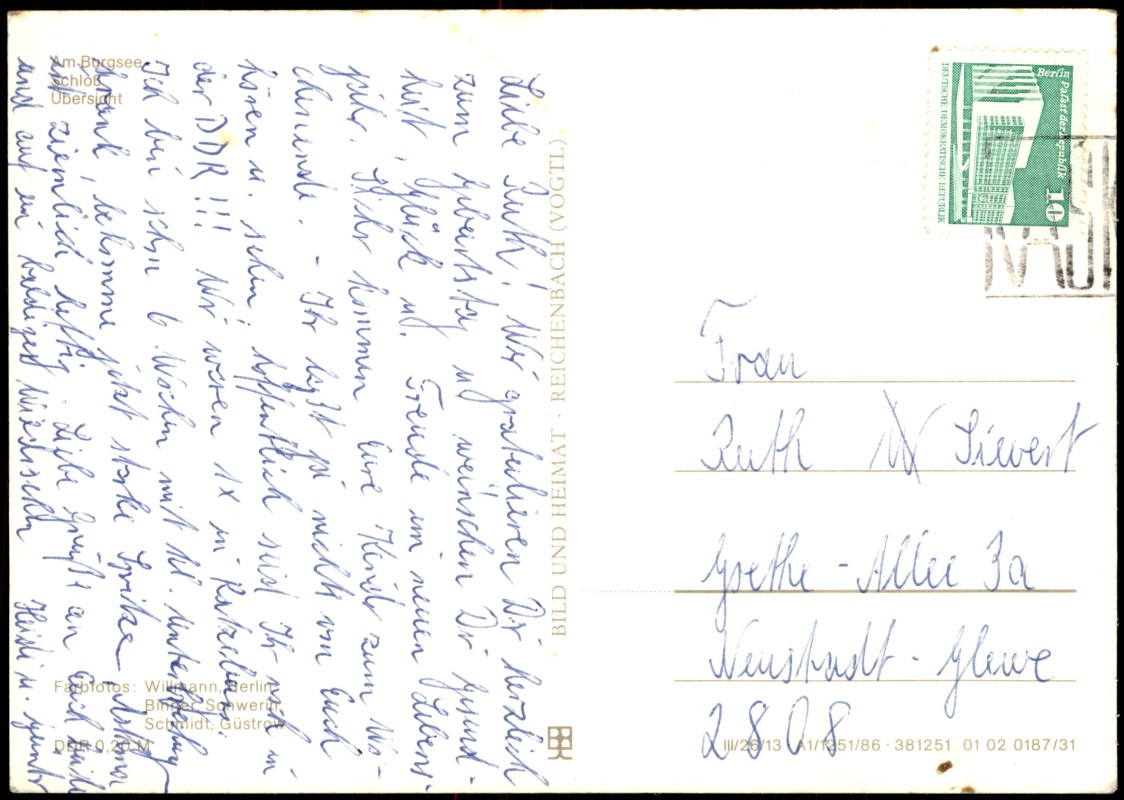 Am Burgsee
Schloß
Übersicht
Liebe Ruth! Wir gratulieren Dir herzlich
zum Geburtstag u. wünschen Dir Gesund-
heit, Glück u. Freude im neuen Lebens-
jahr. Ihr kommen Eure Kinder zum Wo-
chenende. - Ihr laßt ja nichts von Euch
hören u. sehen, hoffentlich seid Ihr noch in
der DDR!!! Wir waren 1x in Ratzeburg.
Ich bin schon 6 Wochen mit kl. Unterbrechung
krank, bekomme jetzt starke Spritzen, Asthma
ist ziemlich heftig. Liebe Grüße an Euch beide
und auf ein baldiges Wiedersehen Heidi u. Günter
Farbfotos: Willmann, Berlin
Binder, Schwerin
Schmidt, Güstrow
DDR 0,20 M
BILD UND HEIMAT · REICHENBACH (VOGTL)
Berlin Palast der Republik
10
DEUTSCHE DEMOKRATISCHE REPUBLIK
Frau
Ruth Sievert
Goethe-Allee 3a
Neustadt-Glewe
2808
III/26/13 A1/1251/86 · 381251 01 02 0187/31